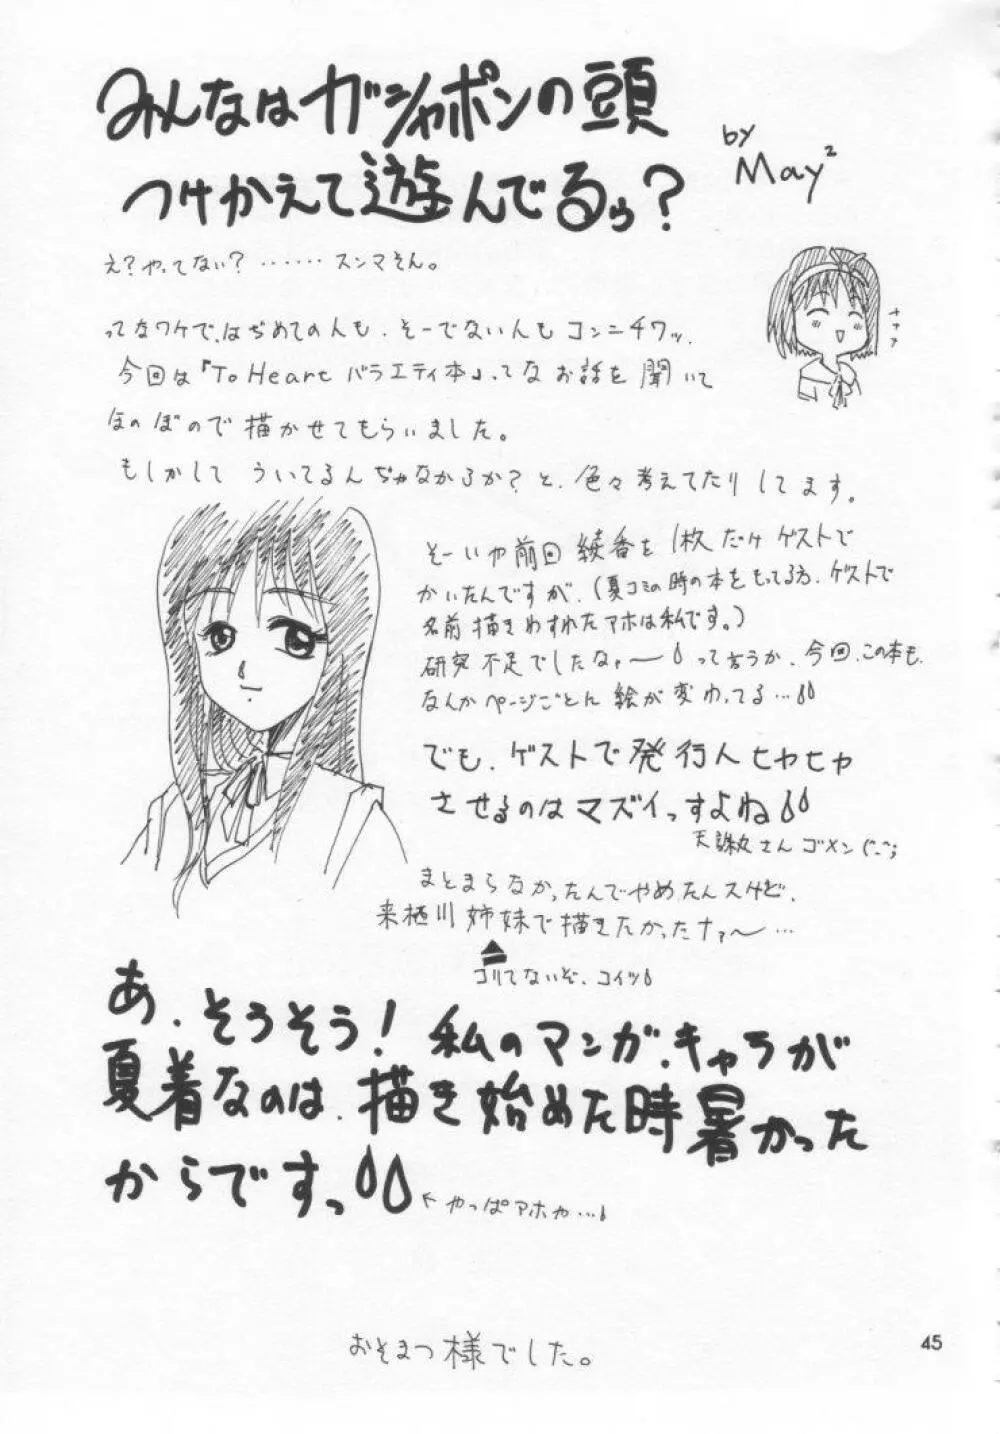 みんなはガシャポンの頭
つけかえて遊んでるゥ?
by May²
え?やってない?……スンマそん。
ってなワケで、はぢめての人も、そーでない人もコンニチワッ。
今回は『To Heart バラエティ本』ってなお話を聞いて
ほのぼので描かせてもらいました。
もしかして ういてるんぢゃなかろか?と、色々考えてたりしてます。
そーいや前回 綾香を1枚だけゲストで
かいたんですが、(夏コミの時の本をもってる方、ゲストで
名前描きわすれたアホは私です。)
研究不足でしたなァ〜 って言うか、今回、この本も、
なんかページごとに 絵が変わってる…
でも、ゲストで発行人ヒヤヒヤ
させるのはマズイっすよね
天誅丸さん ゴメン(^_^;
まとまらなかったんでやめたんスけど、
来栖川姉妹で描きたかったナァ〜…
コリてないぞ、コイツ
あ、そうそう!私のマンガ、キャラが
夏着なのは、描き始めた時暑かった
からですっ
←やっぱアホか…
おそまつ様でした。
45